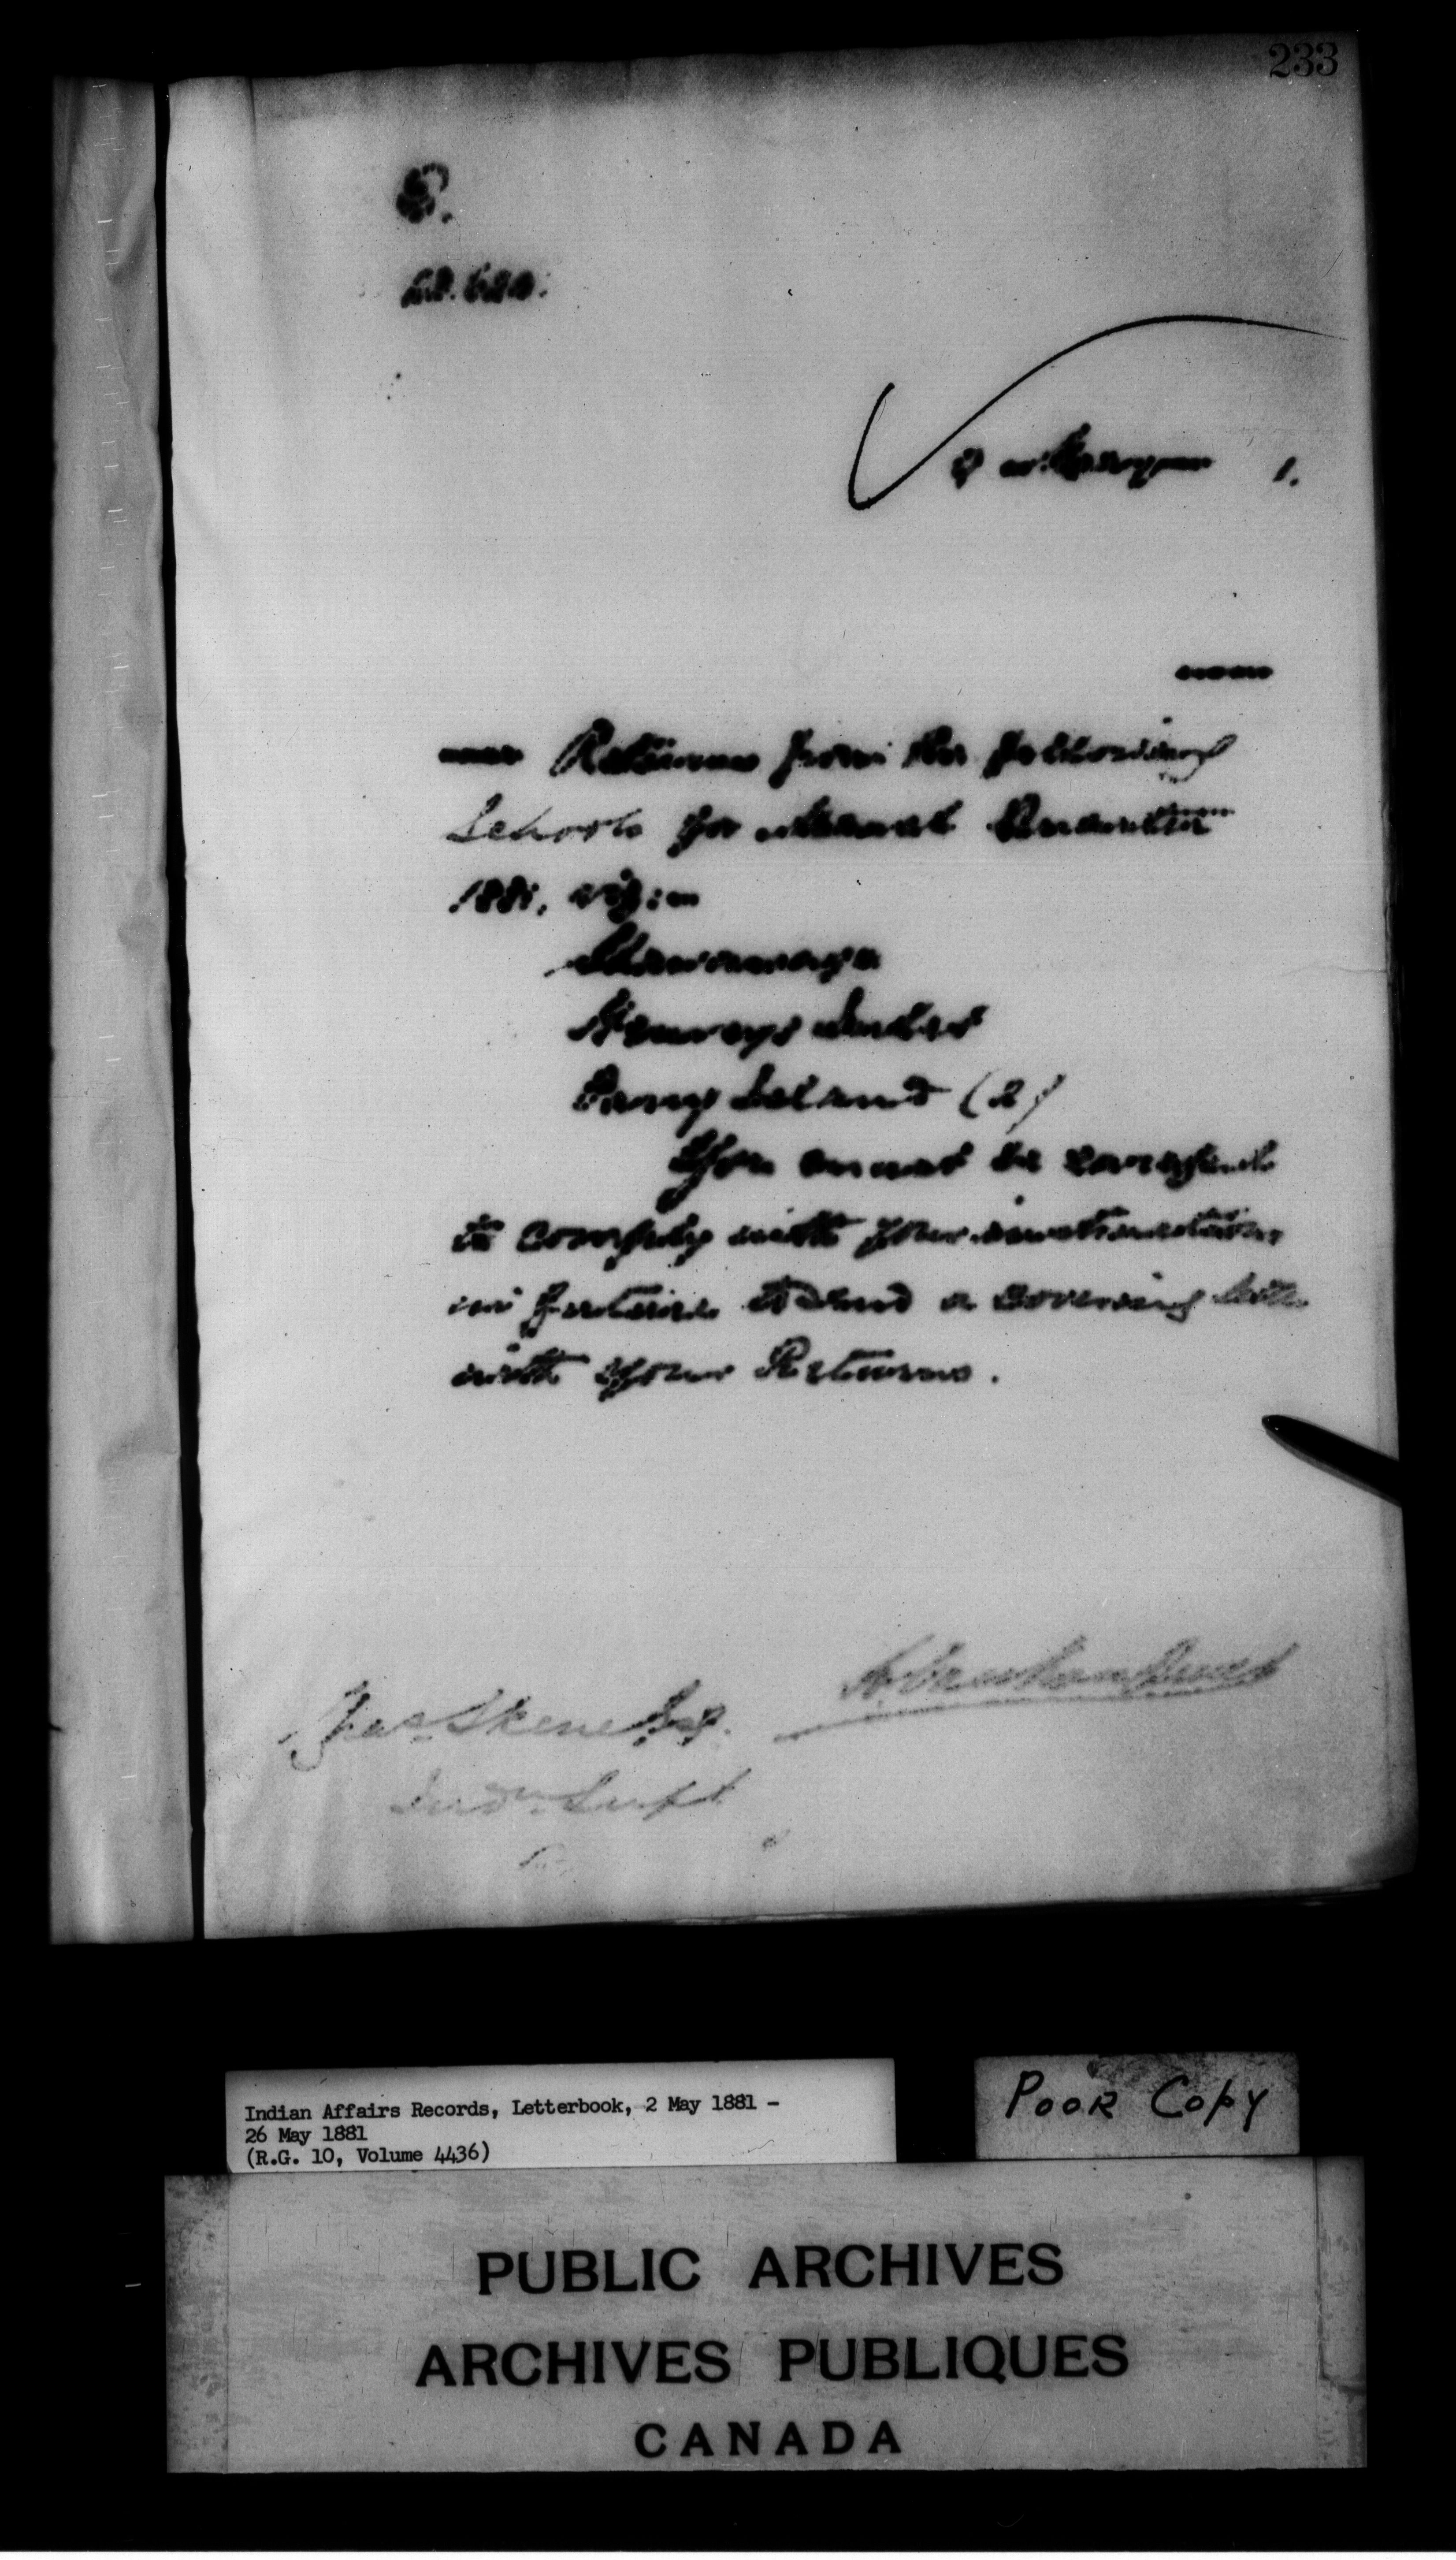 233
Returns from the following
Schools for March Quarter
1881, viz:—
Shawanaga
Henvey's Inlet
Parry Island (2)
You must be careful
to comply with your instructions
in future & send a covering letter
with your Returns.
Jas Skene Esq.
Indn Supt
Indian Affairs Records, Letterbook, 2 May 1881 -
26 May 1881
(R.G. 10, Volume 4436)
POOR COPY
PUBLIC ARCHIVES
ARCHIVES PUBLIQUES
CANADA